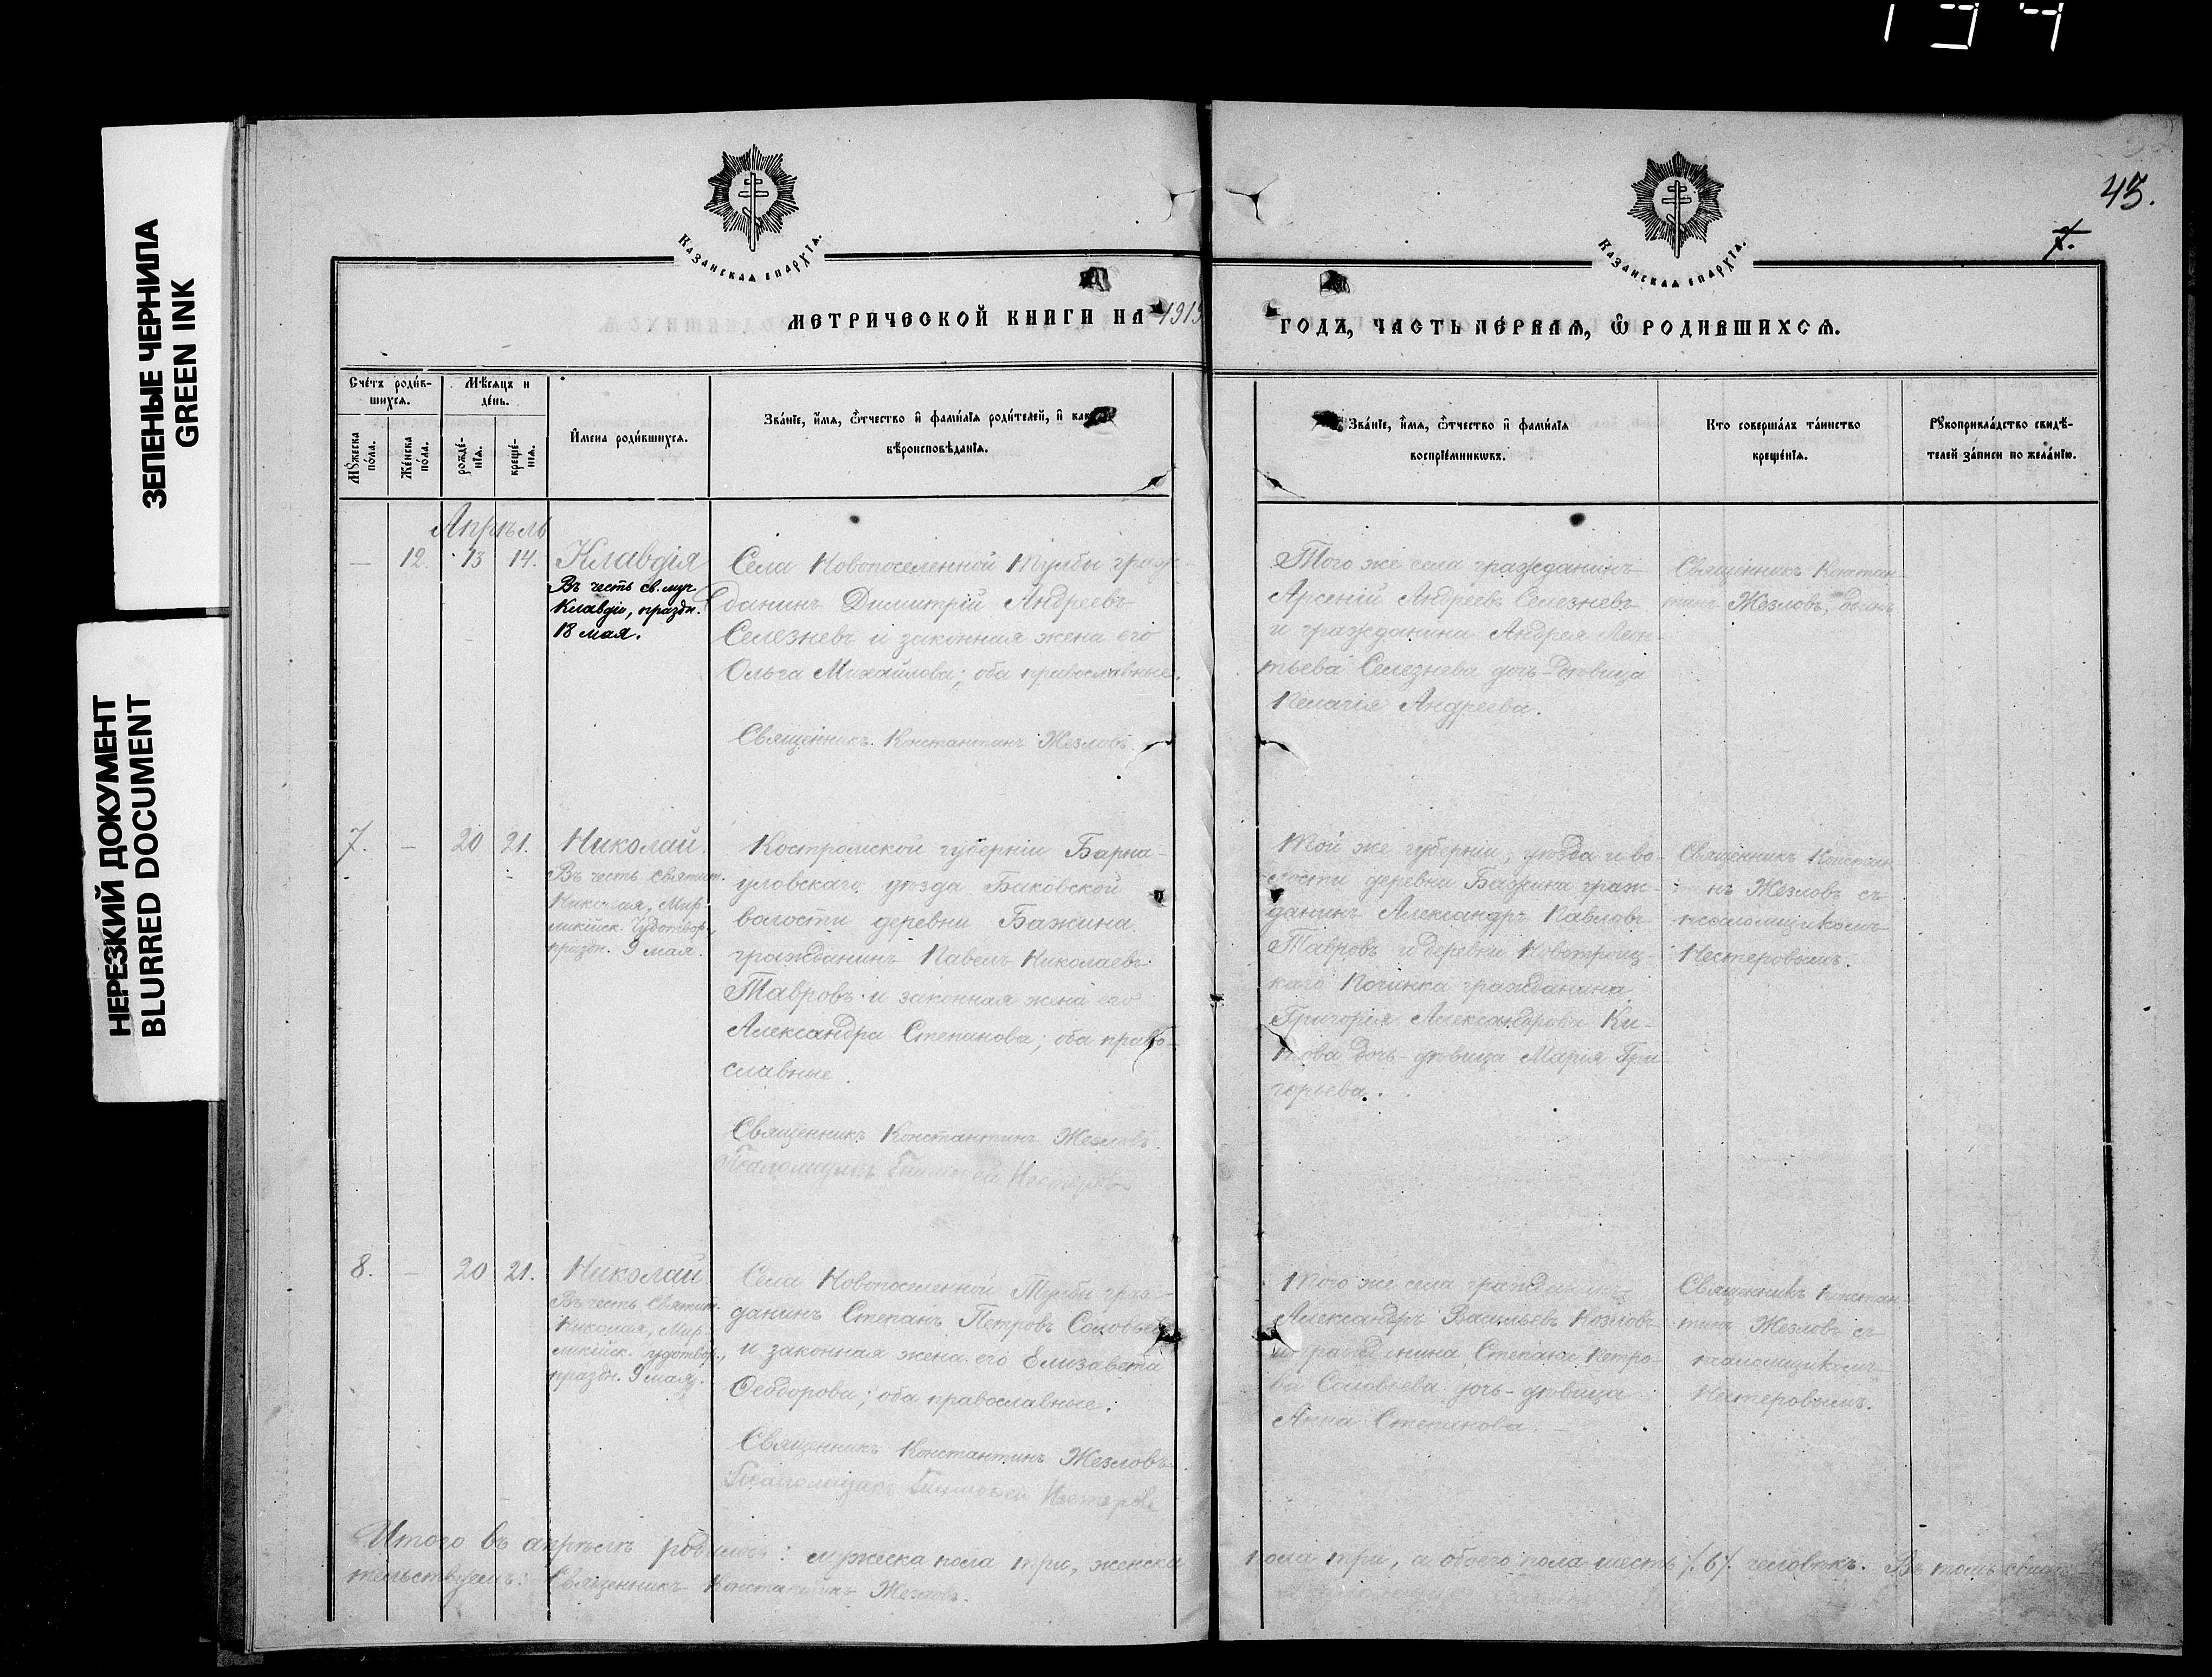 ЗЕЛЕНЫЕ ЧЕРНИЛА
GREEN INK
НЕРЕЗКИЙ ДОКУМЕНТ
BLURRED DOCUMENT
45.
7.
Казанская епархїа.
Казанская епархїа.
МЕТРИЧЕСКОЙ КНИГИ НА 1919
ГОДЪ, ЧАСТЬ ПЕРВАѦ, Ѡ РОДИВШИХСѦ.
Счетъ родив-
шихся.
Мѣсяцъ и
день.
Мꙋжеска
пола.
Женска
пола.
рожде-
нїя.
креще-
нїя.
Имена родившихся.
Званїе, имя, ѿчество и фамилїя родителей, и
вѣроисповѣданїя.
Званїе, имя, ѿчество и фамилїя
воспрїемникѡвъ.
Кто совершалъ таинство
крещенїя.
Рꙋкоприкладство свидѣ-
телей записи по желанїю.
Апрѣль
— 12. 13 14. Клавдія
Въ честь св. муч.
Клавдіи, праздн.
18 мая.
Села Новопоселенной Тумбы граж-
данинъ Димитрій Андреевъ
Селезневъ и законная жена его
Ольга Михайлова; оба православные.
Священникъ Константинъ Жезловъ.
Того же села гражданинъ
Арсеній Андреевъ Селезневъ
и гражданина Андрея Леон-
тьева Селезнева дочь-дѣвица
Пелагія Андреева.
Священникъ Констан-
тинъ Жезловъ, одинъ
7. — 20 21. Николай.
Въ честь Святит.
Николая, Мир-
ликійск. Чудотвор.,
праздн. 9 мая.
Костромской губерніи Варна-
уловскаго уѣзда Баковской
волости деревни Бажина
гражданинъ Павелъ Николаевъ
Тавровъ и законная жена его
Александра Степанова; оба право-
славные.
Священникъ Константинъ Жезловъ.
Псаломщикъ Нестеровъ
Той же губерніи, уѣзда и во-
лости деревни Бажина граж-
данинъ Александръ Павловъ
Тавровъ и деревни Новотроиц-
каго Починка гражданина
Григорія Александрова Ки-
това дочь-дѣвица Марія Гри-
горьева.
Священникъ Констан-
тинъ Жезловъ съ
псаломщикомъ
Нестеровымъ.
8. — 20 21. Николай
Въ честь Святит.
Николая, Мир-
ликійск. чудотвор.,
праздн. 9 мая.
Села Новопоселенной Тумбы граж-
данинъ Степанъ Петровъ Соловьевъ
и законная жена его Елизавета
Ѳеодорова; оба православные.
Священникъ Константинъ Жезловъ.
Псаломщикъ Нестеровъ
Того же села гражданинъ
Александръ Васильевъ Козловъ
и гражданина Степана Петро-
ва Соловьева дочь-дѣвица
Анна Степанова. —
Священникъ Констан-
тинъ Жезловъ съ
псаломщикомъ
Нестеровымъ.
Итого въ апрѣлѣ родилось: мужеска пола три, женска пола три, а обоего пола шесть /.6/. человѣкъ. Въ томъ свидѣ-
тельствуемъ: Священникъ Константинъ Жезловъ.